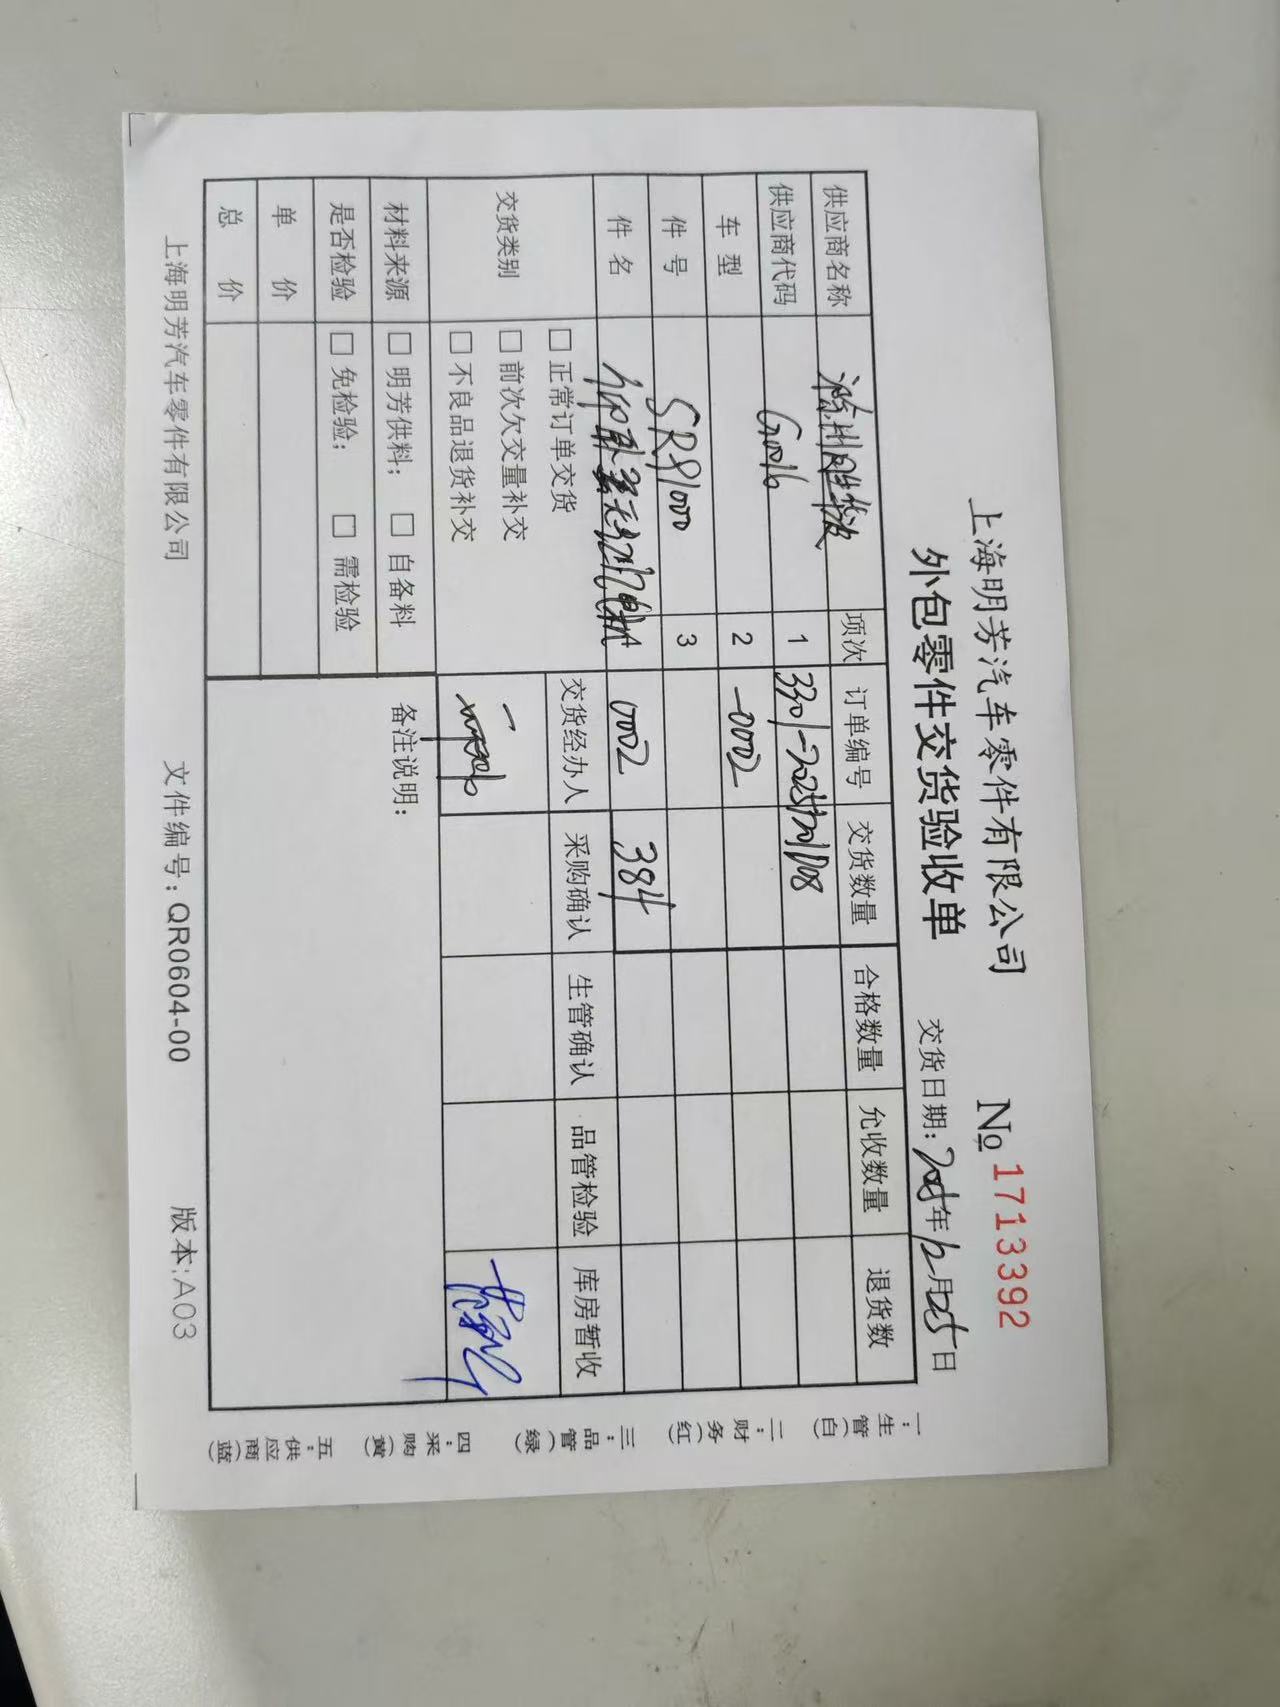 上海明芳汽车零件有限公司 № 1713392
外包零件交货验收单 交货日期：2025年12月25日
供应商名称 项次 订单编号 交货数量 合格数量 允收数量 退货数
供应商代码 G0016 1
车型 2 -0002
件号 SR81000 3
件名 4 0002 384
交货类别 □ 正常订单交货 交货经办人 采购确认 生管确认 品管检验 库房暂收
□ 前次欠交量补交
□ 不良品退货补交
材料来源 □ 明芳供料； □ 自备料 备注说明：
是否检验 □ 免检验； □ 需检验
单价
总价
上海明芳汽车零件有限公司 文件编号：QR0604-00 版本:A03
一：生管（白）
二：财务（红）
三：品管（绿）
四：采购（黄）
五：供应商（蓝）